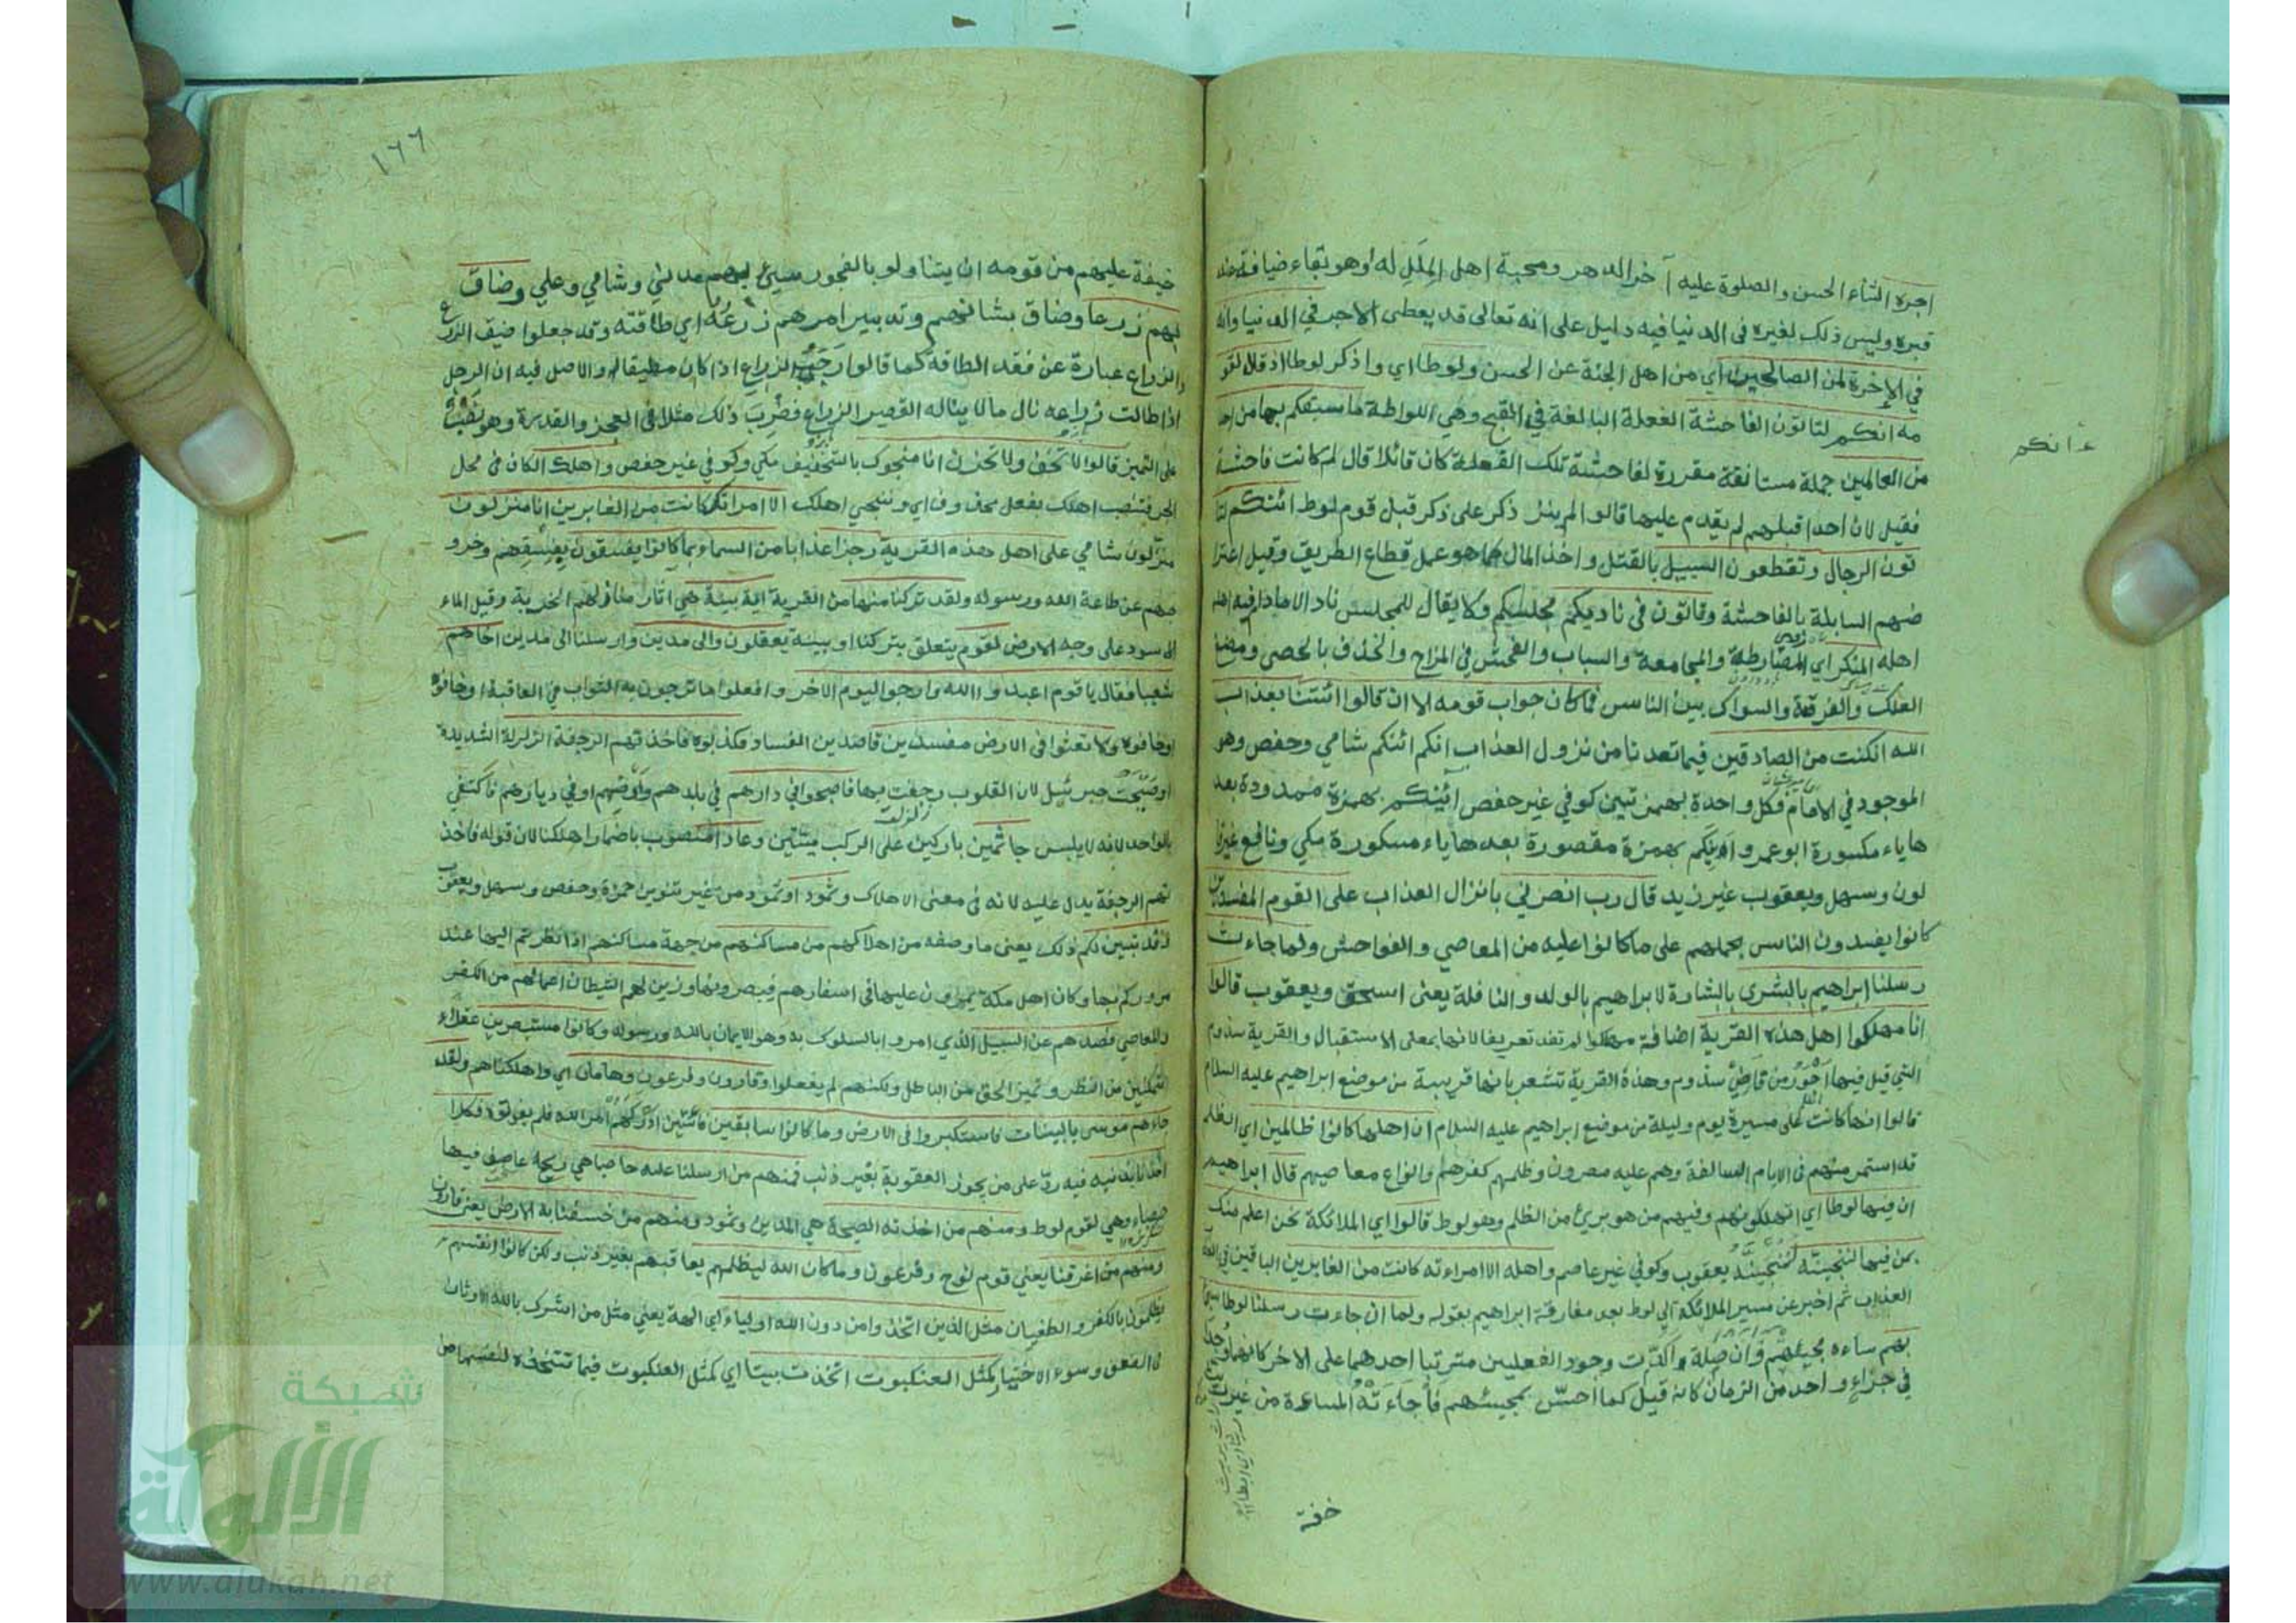 اجره الثناء الحسن والصلوة عليه آخر الدهر ومحبة اهل الملل له أو هو بقاء ضيافة عند
قبره وليس ذلك لغيره في الدنيا فيه دليل على انه تعالى قد يعطى الاجر في الدنيا وانه
في الآخرة لمن الصالحين اي من اهل الجنة عن الحسن ولوطا اي واذكر لوطا اذ قال لقو
مه انكم لتاتون الفاحشة الفعلة البالغة في القبح وهي اللواطة ما سبقكم بها من احد
من العالمين جملة مستانفة مقررة لفاحشة تلك الفعلة كان قائلا قال لم كانت فاحشة
فقيل لان احدا قبلهم لم يقدم عليها قالوا لم ينز ذكر على ذكر قبل قوم لوط ائنكم لتا
تون الرجال وتقطعون السبيل بالقتل واخذ المال كما هو عمل قطاع الطريق وقيل اعترا
ضهم السابلة بالفاحشة وتاتون في ناديكم مجلسكم ولا يقال للمجلس ناد الا مادام فيه اهله
اهله المنكر اي المضارطة والمجامعة والسباب والفحش في المزاح والخذف بالحصى ومضغ
العلك والفرقعة والسواك بين الناس فما كان جواب قومه الا ان قالوا ائتنا بعذاب
الله ان كنت من الصادقين فيما تعدنا من نزول العذاب انكم ائنكم شامي وحفص وهو
الموجود في الامام وكل واحدة بهمزتين كوفي غير حفص آئنكم بهمزة ممدودة بعد
ها ياء مكسورة ابو عمرو اينكم بهمزة مقصورة بعدها ياء مسكورة مكي ونافع غير قا
لون وسهل ويعقوب غير زيد قال رب انصرني بانزال العذاب على القوم المفسدين
كانوا يفسدون الناس بحملهم على ما كانوا عليه من المعاصي والفواحش ولما جاءت
رسلنا ابراهيم بالبشرى بالبشارة لابراهيم بالولد والنافلة يعنى اسحق ويعقوب قالوا
انا مهلكوا اهل هذه القرية اضافة مهلكوا لم تفد تعريفا لانها بمعنى الاستقبال والقرية سدوم
التي قيل فيها اجور من قاضي سدوم وهذه القرية تشعر بانها قريبة من موضع ابراهيم عليه السلام
قالوا انها كانت على مسيرة يوم وليلة من موضع ابراهيم عليه السلام ان اهلها كانوا ظالمين اي الظلم
قد استمر منهم في الايام السالفة وهم عليه مصرون وظلمهم كفرهم وانواع معاصيهم قال ابراهيم
ان فيها لوطا اي اتهلكونهم وفيهم من هو برئ من الظلم وهو لوط قالوا اي الملائكة نحن اعلم منك
بمن فيها لننجينه لننجينه يعقوب وكوفي غير عاصم واهله الا امراءته كانت من الغابرين الباقين في
العذاب ثم اخبر عن مسير الملائكة الى لوط بعد مفارقة ابراهيم بقوله ولما ان جاءت رسلنا لوطا سيئ
بهم ساءه مجيئهم وان صلة واكدت وجود الفعلين مترتبا احدهما على الآخر كانهما وجدا
في جزاء واحد من الزمان كانه قيل كما احس بمجيئهم فاجاءته المساءة من غير
خفة
ءانكم
١٦٦
خيفة عليهم من قومه ان يتناولو بالفجور سيئ بهم مدني وشامي وعلي وضاق
بهم ذرعا وضاق بشانهم وتدبير امرهم ذرعه اي طاقته وقد جعلوا ضيق الذرع
والذراع عبارة عن فقد الطاقة كما قالوا رحب الذراع اذا كان مطيقا له والاصل فيه ان الرجل
اذا طالت ذراعه نال ما لا يناله القصير الذراع فضرب ذلك مثلا في العجز والقدرة وهو نصب
على التميز قالوا لا تخف ولا تحزن انا منجوك بالتخفيف مكي وكوفي غير حفص واهلك الكاف في محل
الجر فينصب اهلك بفعل محذوف اي وننجي اهلك الا امراتك كانت من الغابرين انا منزلون
منزلون شامي على اهل هذه القرية رجزا عذابا من السماء بما كانوا يفسقون بفسقهم وخرو
جهم عن طاعة الله ورسوله ولقد تركنا منها من القرية آية بينة هي آثار منازلهم الخربة وقيل الماء
الاسود على وجه الارض لقوم يتعلق بتركنا او ببينة يعقلون والى مدين وارسلنا الى مدين اخاهم
شعيبا فقال يا قوم اعبدوا الله وارجوا اليوم الآخر وافعلوا ما ترجون به الثواب في العاقبة او خافوه
اوخافوه ولا تعثوا في الارض مفسدين قاصدين الفساد فكذبوه فاخذتهم الرجفة الزلزلة الشديدة
او صيحة جبرئيل لان القلوب رجفت بها فاصبحوا في دارهم في بلدهم وارضهم او في ديارهم فاكتفى
بالواحد لانه لا يلبس جاثمين باركين على الركب ميتين وعادا منصوب باضمار اهلكنا لان قوله فاخذ
تهم الرجفة يدل عليه لانه في معنى الاهلاك وثمود او ثمود من غير تنوين حمزة وحفص وسهل ويعقوب
وقد تبين لكم ذلك يعنى ما وصفه من اهلاكهم من مساكنهم من جهة مساكنهم اذا نظرتم اليها عند
مروركم بها وكان اهل مكة يمرون عليها في اسفارهم فيبصرونها وزين لهم الشيطان اعمالهم من الكفر
والمعاصي فصدهم عن السبيل الذي امروا بالسلوك به وهو الايمان بالله ورسوله وكانوا مستبصرين عقلاء
متمكنين من النظر وتميز الحق من الباطل ولكنهم لم يفعلوا وقارون وفرعون وهامان اي واهلكناهم ولقد
جاءهم موسى بالبينات فاستكبروا في الارض وما كانوا سابقين فائتين ادركهم امر الله فلم يفوتوه فكلا
اخذنا بذنبه فيه رد على من يجوز العقوبة بغير ذنب فمنهم من ارسلنا عليه حاصبا هي ريح عاصف فيها
حصباء وهي لقوم لوط ومنهم من اخذته الصيحة هي المدين وثمود ومنهم من خسفنا به الارض يعنى قارون
ومنهم من اغرقنا يعني قوم نوح وفرعون وما كان الله ليظلمهم يعاقبهم بغير ذنب ولكن كانوا انفسهم
يظلمون بالكفر والطغيان مثل الذين اتخذوا من دون الله اولياء اي الهة يعني مثل من اشرك بالله الاوثان
في الضعف وسوء الاختيار كمثل العنكبوت اتخذت بيتا اي كمثل العنكبوت فيما تتخذه لنفسها من
شبكة
الألوكة
www.alukah.net